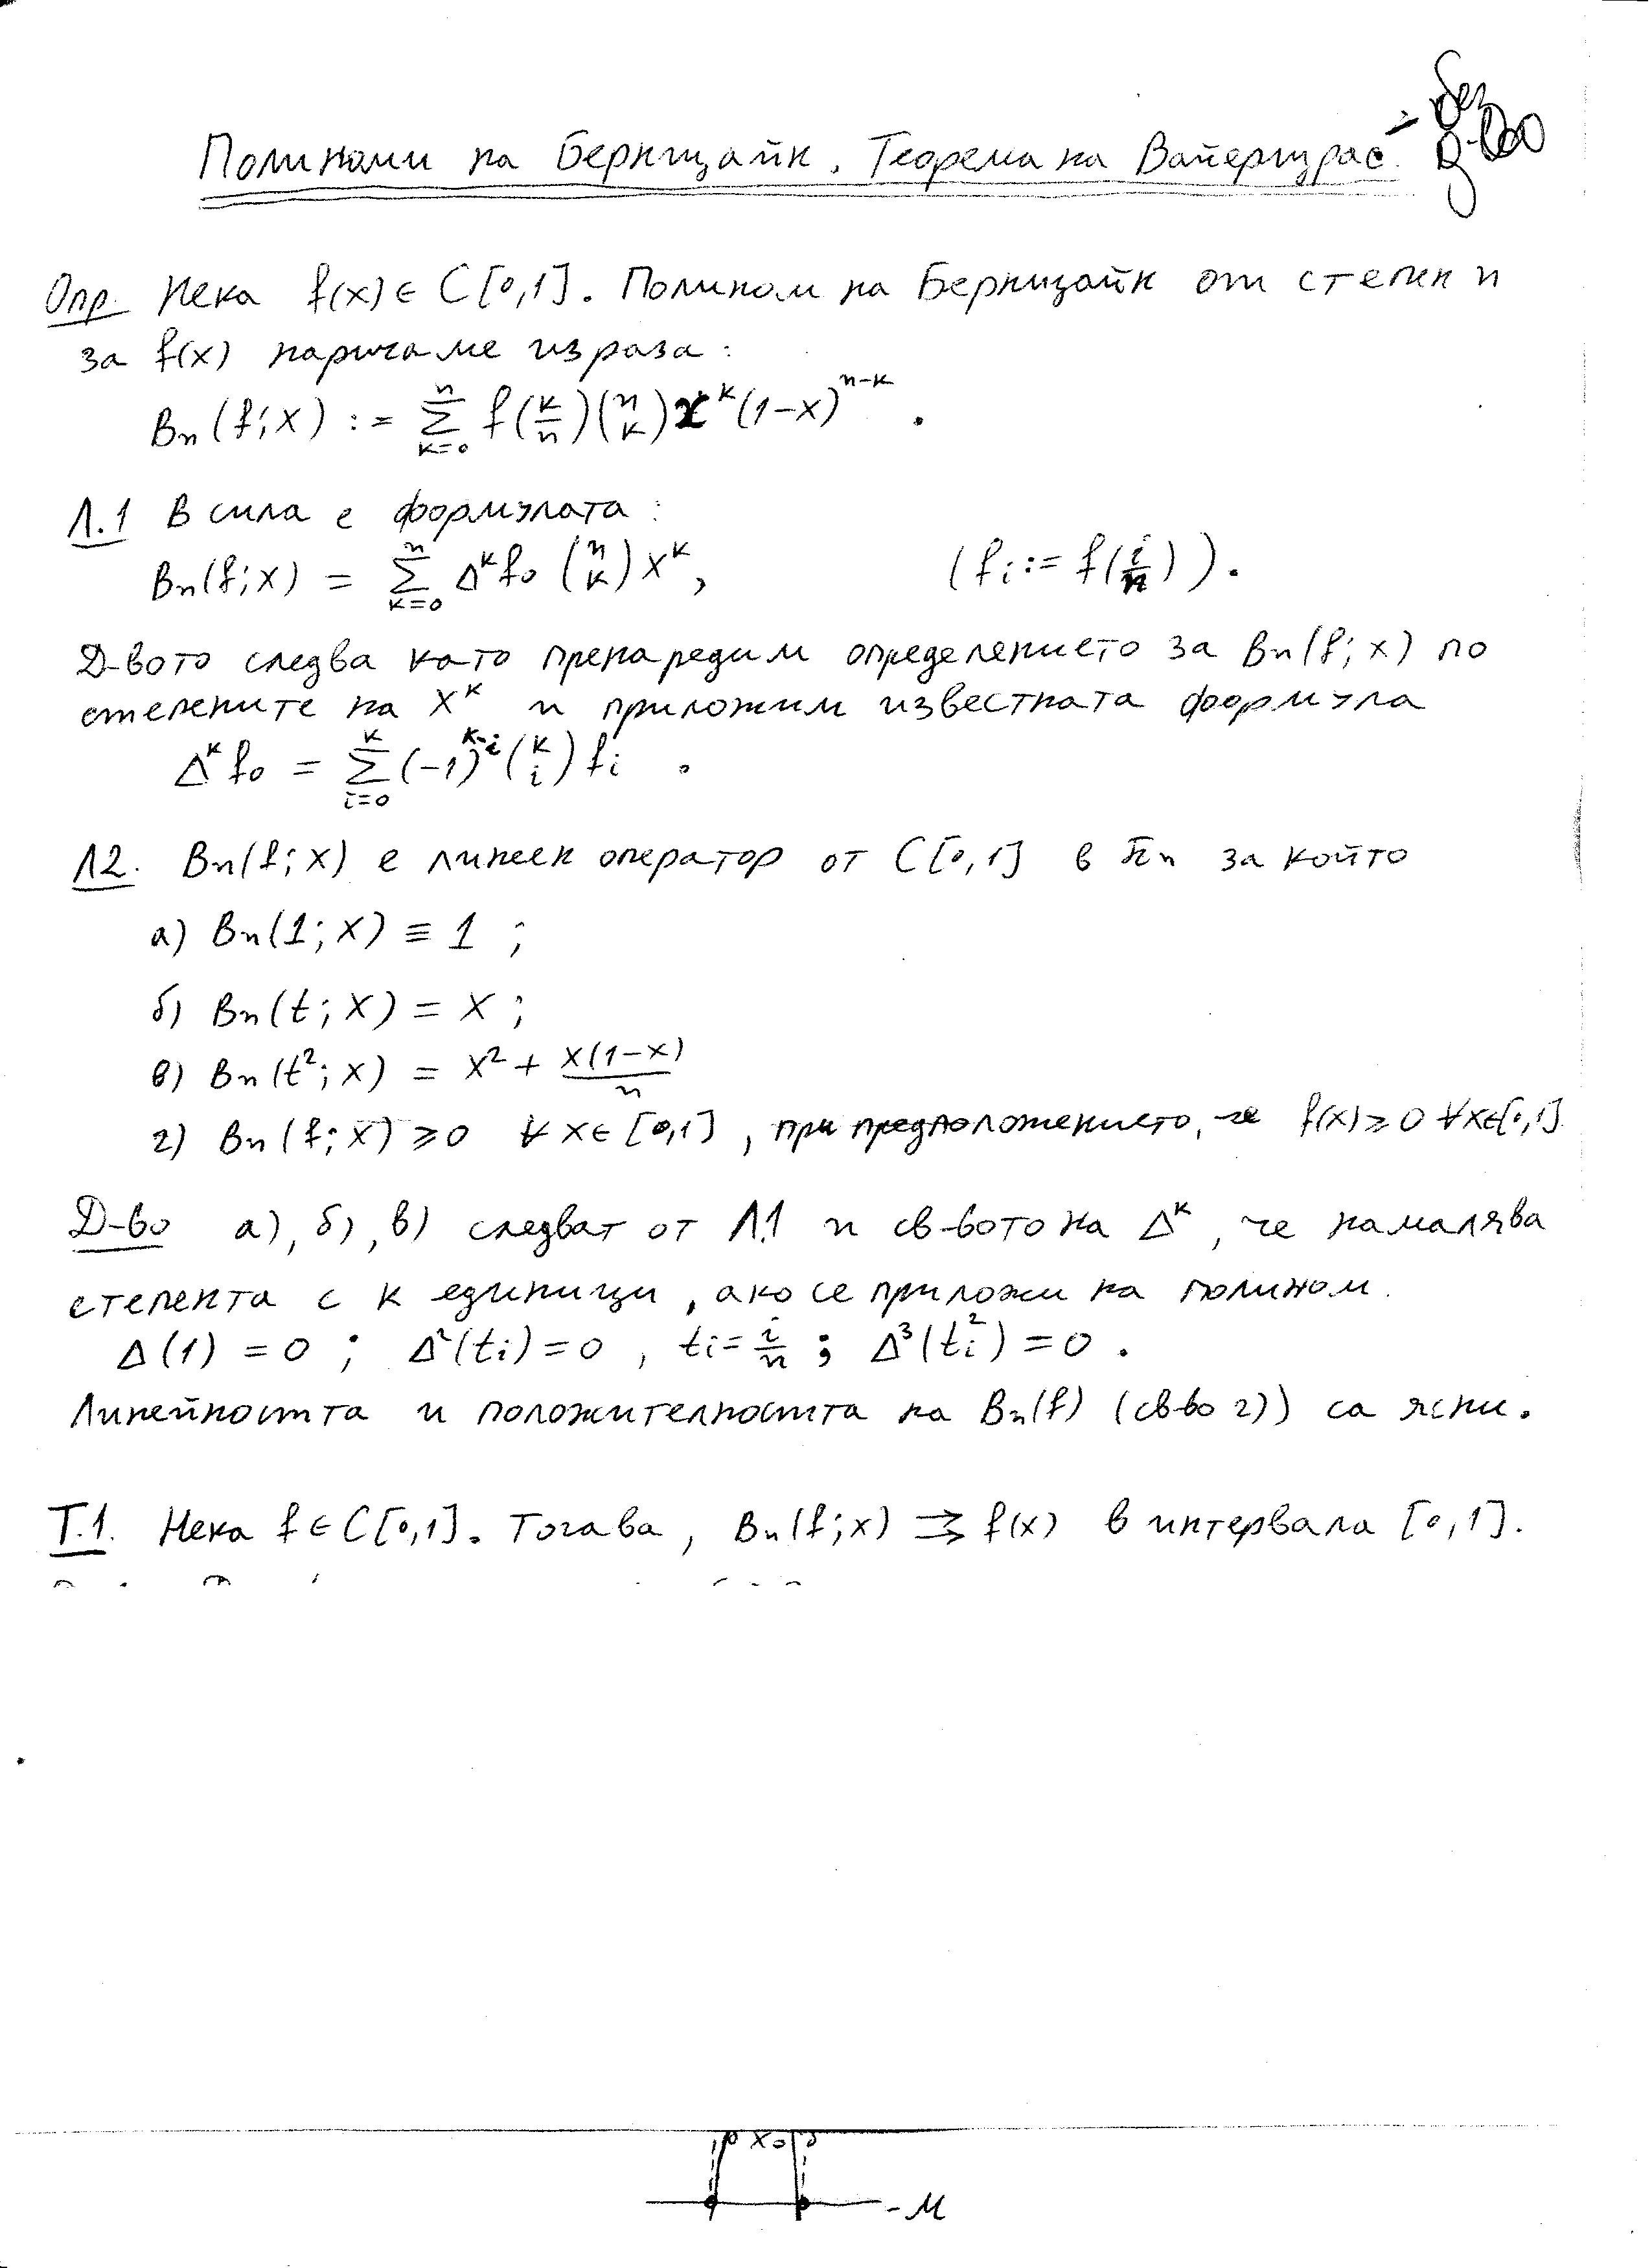 Полиноми на Бернщайн. Теорема на Вайерщрас.
- без
д-во
Опр. Нека f(x) ∈ C[0,1]. Полином на Бернщайн от степен n
за f(x) наричаме израза:
Bn(f;x) := ∑_{k=0}^{n} f(k/n) (n k) x^k (1-x)^{n-k}.
Л.1 В сила е формулата:
Bn(f;x) = ∑_{k=0}^{n} Δ^k f₀ (n k) x^k, (fi := f(i/n)).
Д-вото следва като пренаредим определението за Bn(f;x) по
степените на x^k и приложим известната формула
Δ^k f₀ = ∑_{i=0}^{k} (-1)^{k-i} (k i) fi .
Л2. Bn(f;x) е линеен оператор от C[0,1] в πn за който
а) Bn(1;x) ≡ 1 ;
б) Bn(t;x) = x ;
в) Bn(t²;x) = x² + x(1-x)/n
г) Bn(f;x) ≥ 0 ∀ x ∈ [0,1], при предположението, че f(x) ≥ 0 ∀x∈[0,1].
Д-во а), б), в) следват от Л.1 и св-вото на Δ^k, че намалява
степента с k единици, ако се приложи на полином.
Δ(1) = 0 ; Δ²(ti) = 0 , ti = i/n ; Δ³(ti²) = 0 .
Линейността и положителността на Bn(f) (св-во г)) са ясни.
Т.1. Нека f ∈ C[0,1]. Тогава, Bn(f;x) ⇉ f(x) в интервала [0,1].
x₀
-M